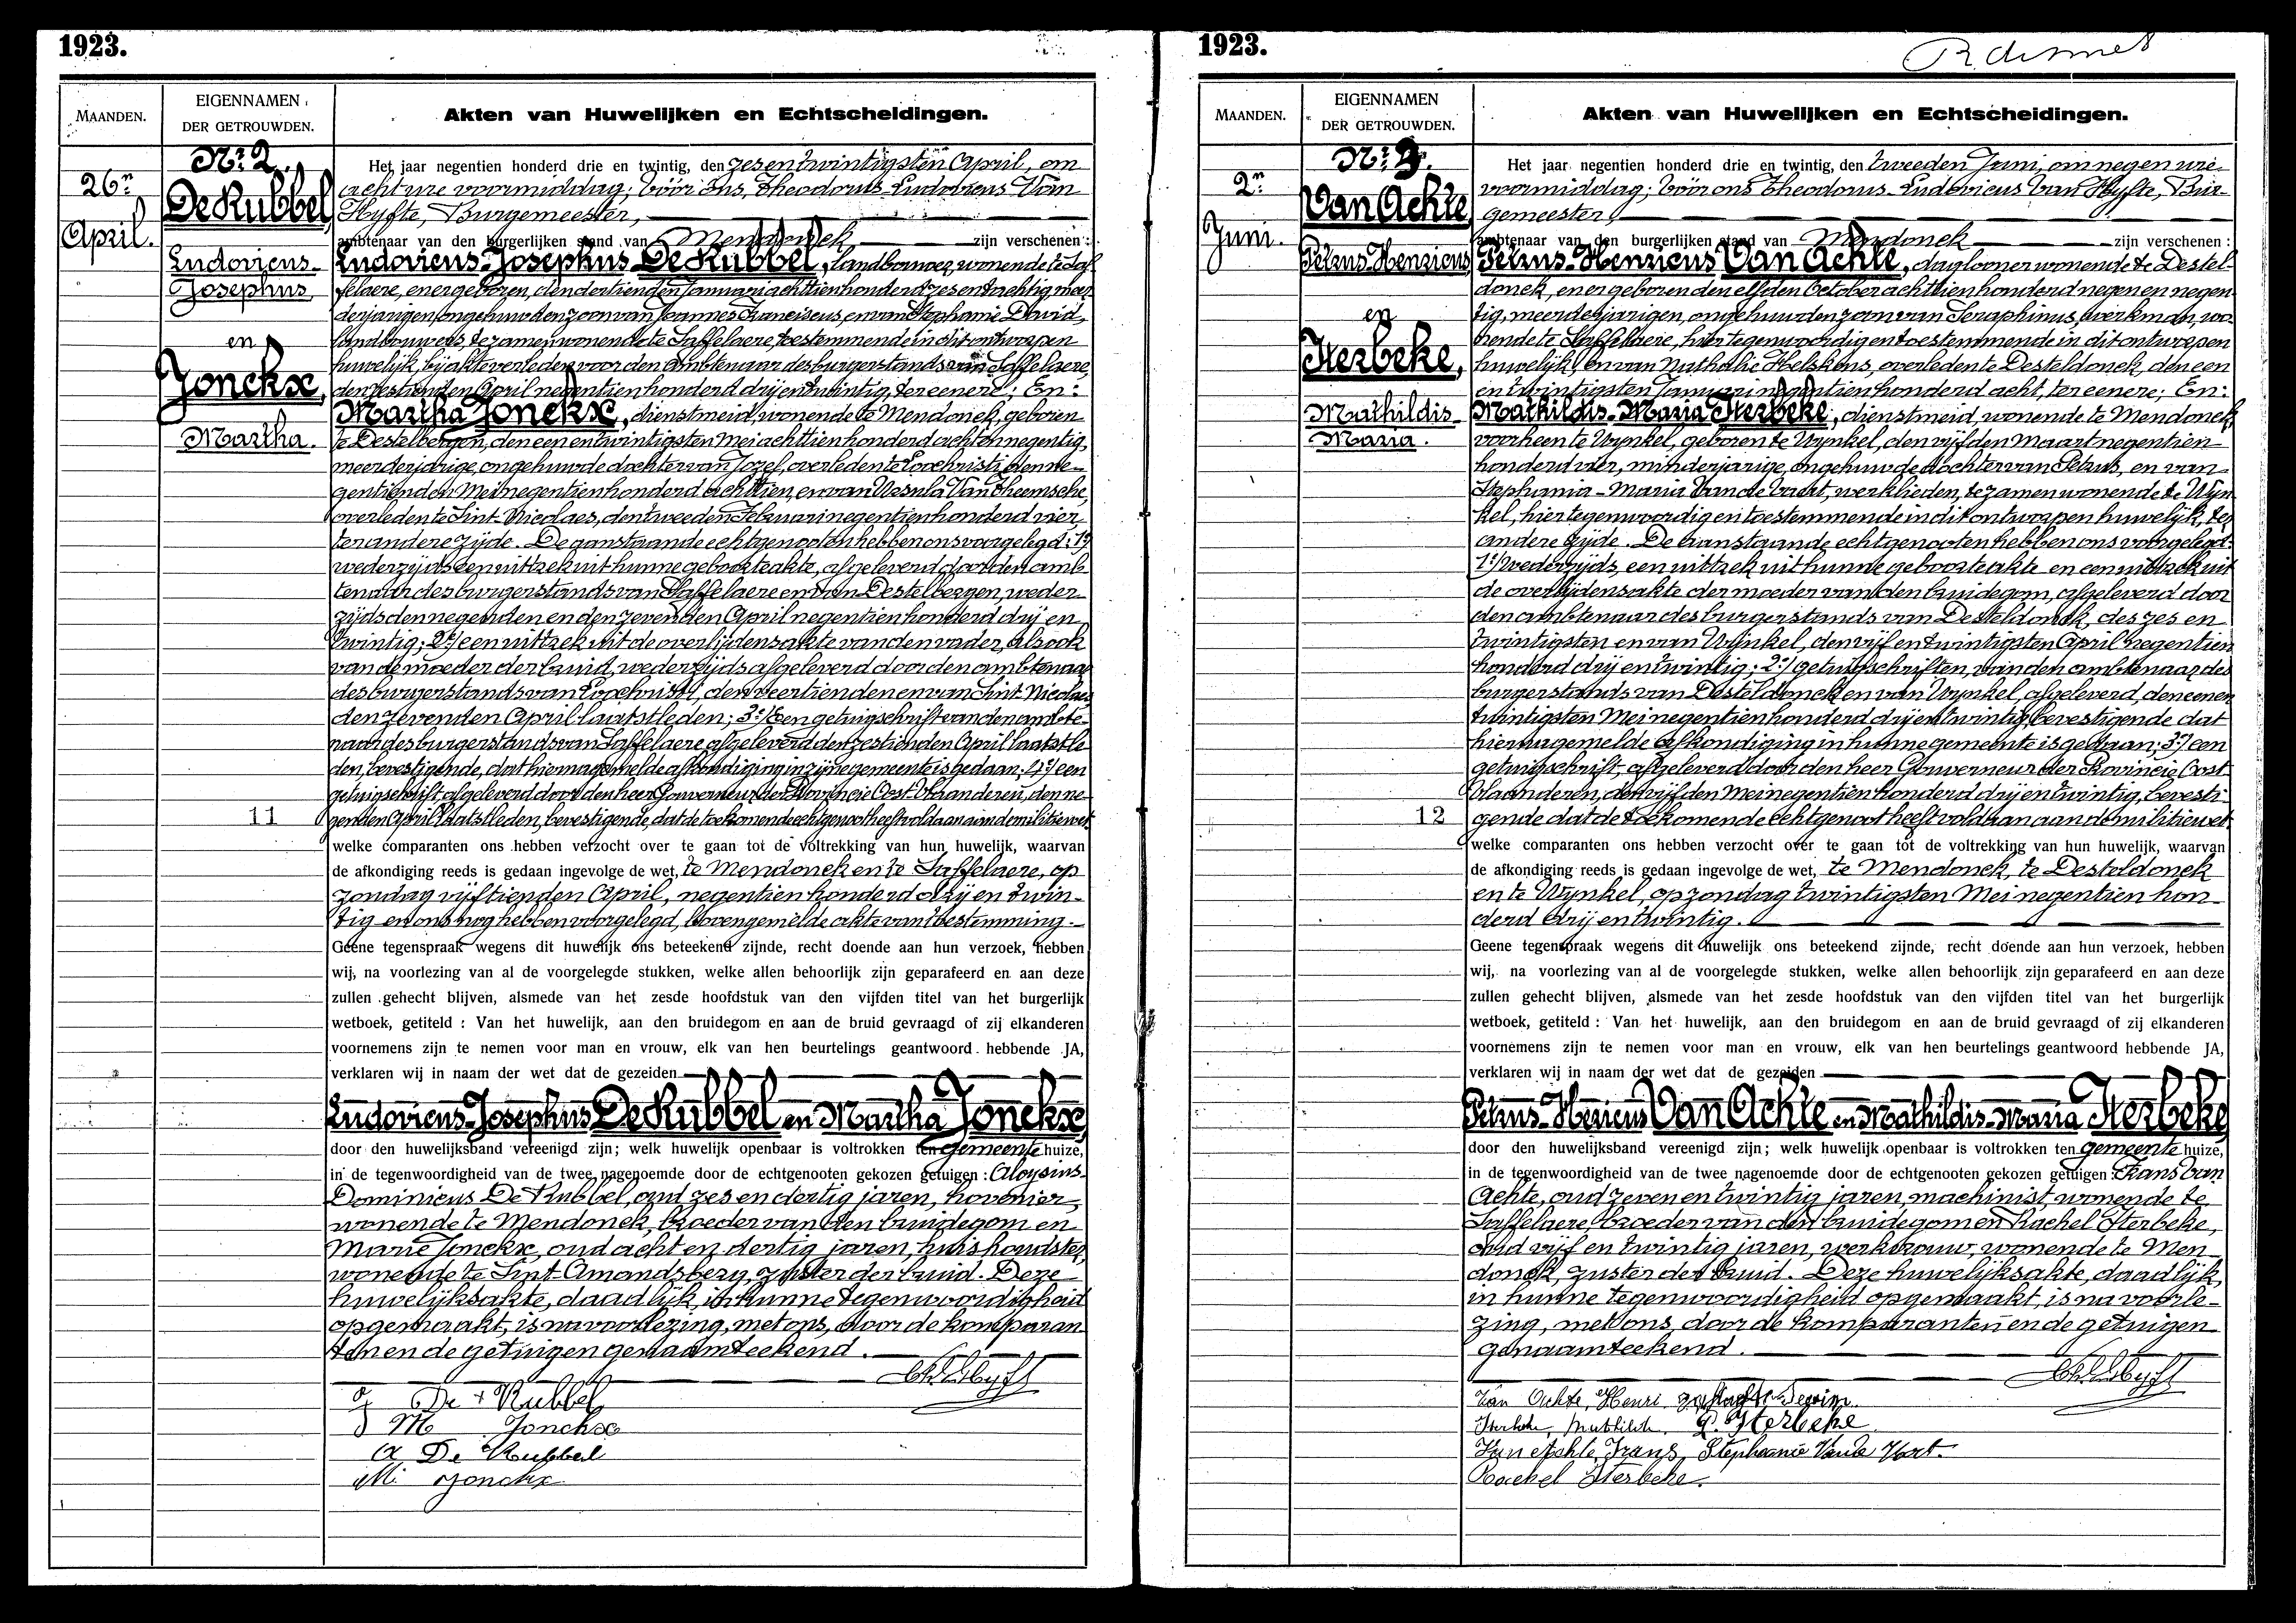 1923.
MAANDEN.
EIGENNAMEN
DER GETROUWDEN.
Akten van Huwelijken en Echtscheidingen.
Nr. 2.
26n
April.
De Rubbel,
Ludovicus-
Josephus,
en
Jonckx,
Martha.
11
Het jaar negentien honderd drie en twintig, den zesentwintigsten April, om
acht ure voormiddag; vóór ons, Theodorus-Ludovicus Van
Hyfte, Burgemeester,
ambtenaar van den burgerlijken stand van Mendonck zijn verschenen:
Ludovicus-Josephus De Rubbel, landbouwer, wonende te Saf-
felaere, en er geboren, den dertienden Januari achttienhonderd zesentachtig, meer-
derjarigen, ongehuwden zoon van Joannes Franciscus, en van Stephanie David,
landbouwers, te zamen wonende te Saffelaere, toestemmende in dit ontworpen
huwelijk, bij akte verleden voor den ambtenaar des burgerstands van Saffelaere,
den zestienden April negentienhonderd drij en twintig, ter eenere; En:
Martha Jonckx, dienstmeid, wonende te Mendonck, geboren
te Destelbergen, den een en twintigsten Mei achttienhonderd acht en negentig,
meerderjarige, ongehuwde dochter van Jozef, overleden te Loochristi, den ne-
gentienden Mei negentienhonderd achttien, en van Ursula Van Theemsche,
overleden te Sint-Nicolaes, den tweeden Februari negentienhonderd vier,
ter andere zijde. De aanstaande echtgenooten hebben ons voorgelegd: 1º/
wederzijds een uittrek uit hunne geboorteakte, afgeleverd door den amb-
tenaar des burgerstands van Saffelaere en van Destelbergen, weder-
zijds den negenden en den zevenden April negentien honderd drij en
twintig; 2º/ een uittrek uit de overlijdensakte van den vader, alsook
van de moeder der bruid, wederzijds afgeleverd door den ambtenaar
des burgerstands van Loochristi, den veertienden en van Sint-Nicolaes
den zevenden April laatstleden; 3º/ een getuigschrift van den ambte-
naar des burgerstands van Saffelaere afgeleverd den zestienden April laatstle-
den, bevestigende, dat hiernagemelde afkondiging in zijne gemeente is gedaan; 4º/ een
getuigschrift afgeleverd door den heer Gouverneur der Provincie Oost-Vlaanderen, den ne-
genden April laatstleden, bevestigende, dat de toekomende echtgenoot heeft voldaan aan de militiewet.
welke comparanten ons hebben verzocht over te gaan tot de voltrekking van hun huwelijk, waarvan
de afkondiging reeds is gedaan ingevolge de wet, te Mendonck en te Saffelaere, op
zondag vijftienden April, negentien honderd drij en twin-
tig en ons nog hebben voorgelegd, bovengemelde akte van toestemming.
Geene tegenspraak wegens dit huwelijk ons beteekend zijnde, recht doende aan hun verzoek, hebben
wij, na voorlezing van al de voorgelegde stukken, welke allen behoorlijk zijn geparafeerd en aan deze
zullen gehecht blijven, alsmede van het zesde hoofdstuk van den vijfden titel van het burgerlijk
wetboek, getiteld : Van het huwelijk, aan den bruidegom en aan de bruid gevraagd of zij elkanderen
voornemens zijn te nemen voor man en vrouw, elk van hen beurtelings geantwoord hebbende JA,
verklaren wij in naam der wet dat de gezeiden
Ludovicus-Josephus De Rubbel en Martha Jonckx,
door den huwelijksband vereenigd zijn; welk huwelijk openbaar is voltrokken ten gemeente huize,
in de tegenwoordigheid van de twee nagenoemde door de echtgenooten gekozen getuigen: Aloysius-
Dominicus De Rubbel, oud zes en dertig jaren, hovenier,
wonende te Mendonck, broeder van den bruidegom en
Marie Jonckx, oud acht en dertig jaren, huishoudster,
wonende te Sint-Amandsberg, zuster der bruid. Deze
huwelijksakte, daadlijk, in hunne tegenwoordigheid
opgemaakt, is na voorlezing, met ons, door de komparan-
ten en de getuigen genaamteekend.
De Rubbel
M Jonckx
A De Rubbel
M. Jonckx
1923.
MAANDEN.
EIGENNAMEN
DER GETROUWDEN.
Akten van Huwelijken en Echtscheidingen.
Nr. 3.
2n
Juni.
Van Achte,
Petrus-Henricus
en
Sterbeke,
Mathildis-
Maria.
12
Het jaar negentien honderd drie en twintig, den tweeden Juni, om negen ure
voormiddag; vóór ons Theodorus-Ludovicus Van Hyfte, Bur-
gemeester,
ambtenaar van den burgerlijken stand van Mendonck zijn verschenen :
Petrus-Henricus Van Achte, daglooner wonende te Destel-
donck, en er geboren den elfden October achttienhonderd negen en negen-
tig, meerderjarigen, ongehuwden zoon van Seraphinus, werkman, wo-
nende te Saffelaere, hier tegenwoordig en toestemmende in dit ontworpen
huwelijk, en van Nathalie Helskens, overleden te Desteldonck, den een
en twintigsten Januari negentien honderd acht, ter eenere; En:
Mathildis-Maria Sterbeke, dienstmeid, wonende te Mendonck,
voorheen te Wynkel, geboren te Wynkel, den vijfden Maart negentien
honderd vier, minderjarige, ongehuwde dochter van Petrus, en van
Stephania-Maria Van de Vaart, werklieden, te zamen wonende te Wyn-
kel, hier tegenwoordig en toestemmende in dit ontworpen huwelijk, ter
andere zijde. De aanstaande echtgenooten hebben ons voorgelegd:
1º/ wederzijds, een uittrek uit hunne geboorteakte en een uittrek uit
de overlijdensakte der moeder van den bruidegom, afgeleverd door
den ambtenaar des burgerstands van Desteldonck, des zes en
twintigsten en van Wynkel, den vijf en twintigsten April negentien
honderd drij en twintig; 2º/ getuigschriften, van den ambtenaar des
burgerstands van Desteldonck en van Wynkel, afgeleverd, den eenen
twintigsten Mei negentienhonderd drij en twintig, bevestigende dat
hiernagemelde afkondiging in hunne gemeente is gedaan; 3º/ een
getuigschrift, afgeleverd door den heer Gouverneur der Provincie Oost-
Vlaanderen, den vijfden Mei negentien honderd drij en twintig, bevesti-
gende dat de toekomende echtgenoot heeft voldaan aan de militiewet.
welke comparanten ons hebben verzocht over te gaan tot de voltrekking van hun huwelijk, waarvan
de afkondiging reeds is gedaan ingevolge de wet, te Mendonck, te Desteldonck
en te Wynkel, op zondag twintigsten Mei negentien hon-
derd drij en twintig.
Geene tegenspraak wegens dit huwelijk ons beteekend zijnde, recht doende aan hun verzoek, hebben
wij, na voorlezing van al de voorgelegde stukken, welke allen behoorlijk zijn geparafeerd en aan deze
zullen gehecht blijven, alsmede van het zesde hoofdstuk van den vijfden titel van het burgerlijk
wetboek, getiteld : Van het huwelijk, aan den bruidegom en aan de bruid gevraagd of zij elkanderen
voornemens zijn te nemen voor man en vrouw, elk van hen beurtelings geantwoord hebbende JA,
verklaren wij in naam der wet dat de gezeiden
Petrus-Henricus Van Achte en Mathildis-Maria Sterbeke
door den huwelijksband vereenigd zijn; welk huwelijk openbaar is voltrokken ten gemeente huize,
in de tegenwoordigheid van de twee nagenoemde door de echtgenooten gekozen getuigen: Frans Van
Achte, oud zeven en twintig jaren, machinist, wonende te
Saffelaere, broeder van den bruidegom en Rachel Sterbeke,
oud vijf en twintig jaren, werkvrouw, wonende te Men-
donck, zuster der bruid. Deze huwelijksakte, daadlijk,
in hunne tegenwoordigheid opgemaakt, is na voorle-
zing, met ons, door de komparanten en de getuigen
genaamteekend.
Van Achte, Henri.
Sterbeke Mathilde. P. Sterbeke
Van Achte Frans, Stephanie Van de
Rachel Sterbeke.